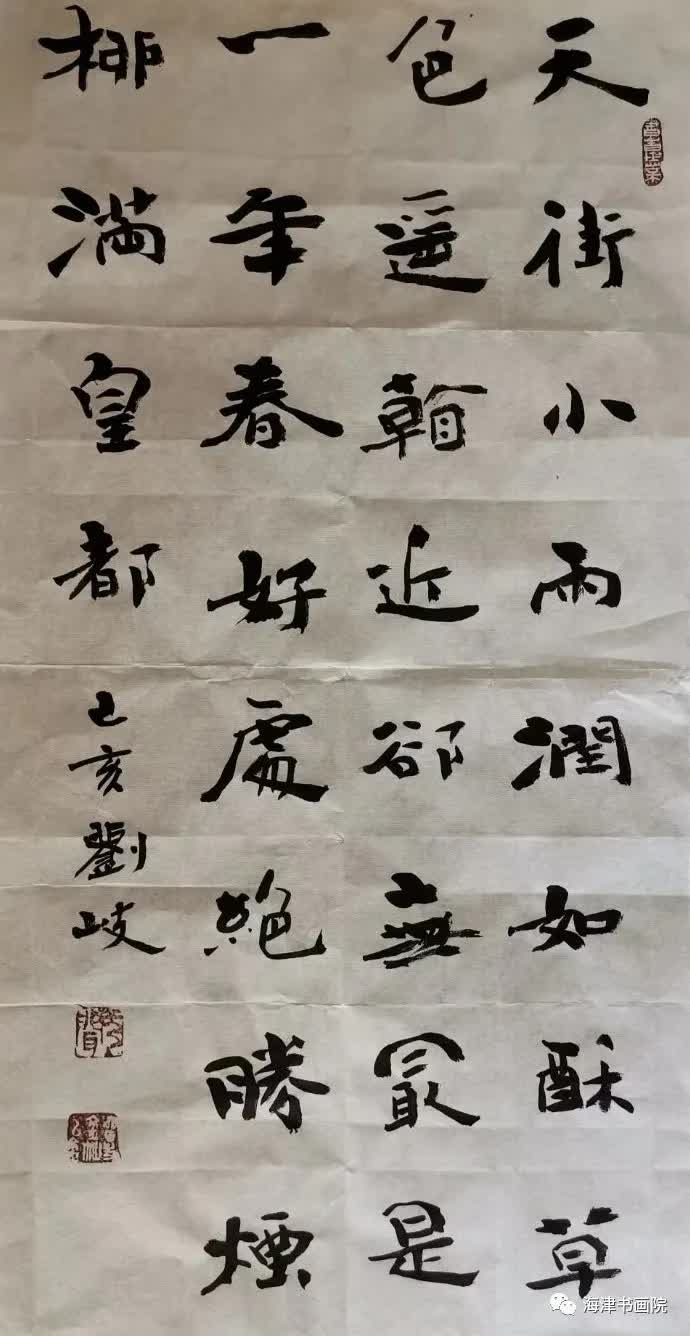 天街小雨潤如酥草
色遥看近卻無最是
一年春好處絕勝煙
柳滿皇都
己亥劉岐
海津书画院